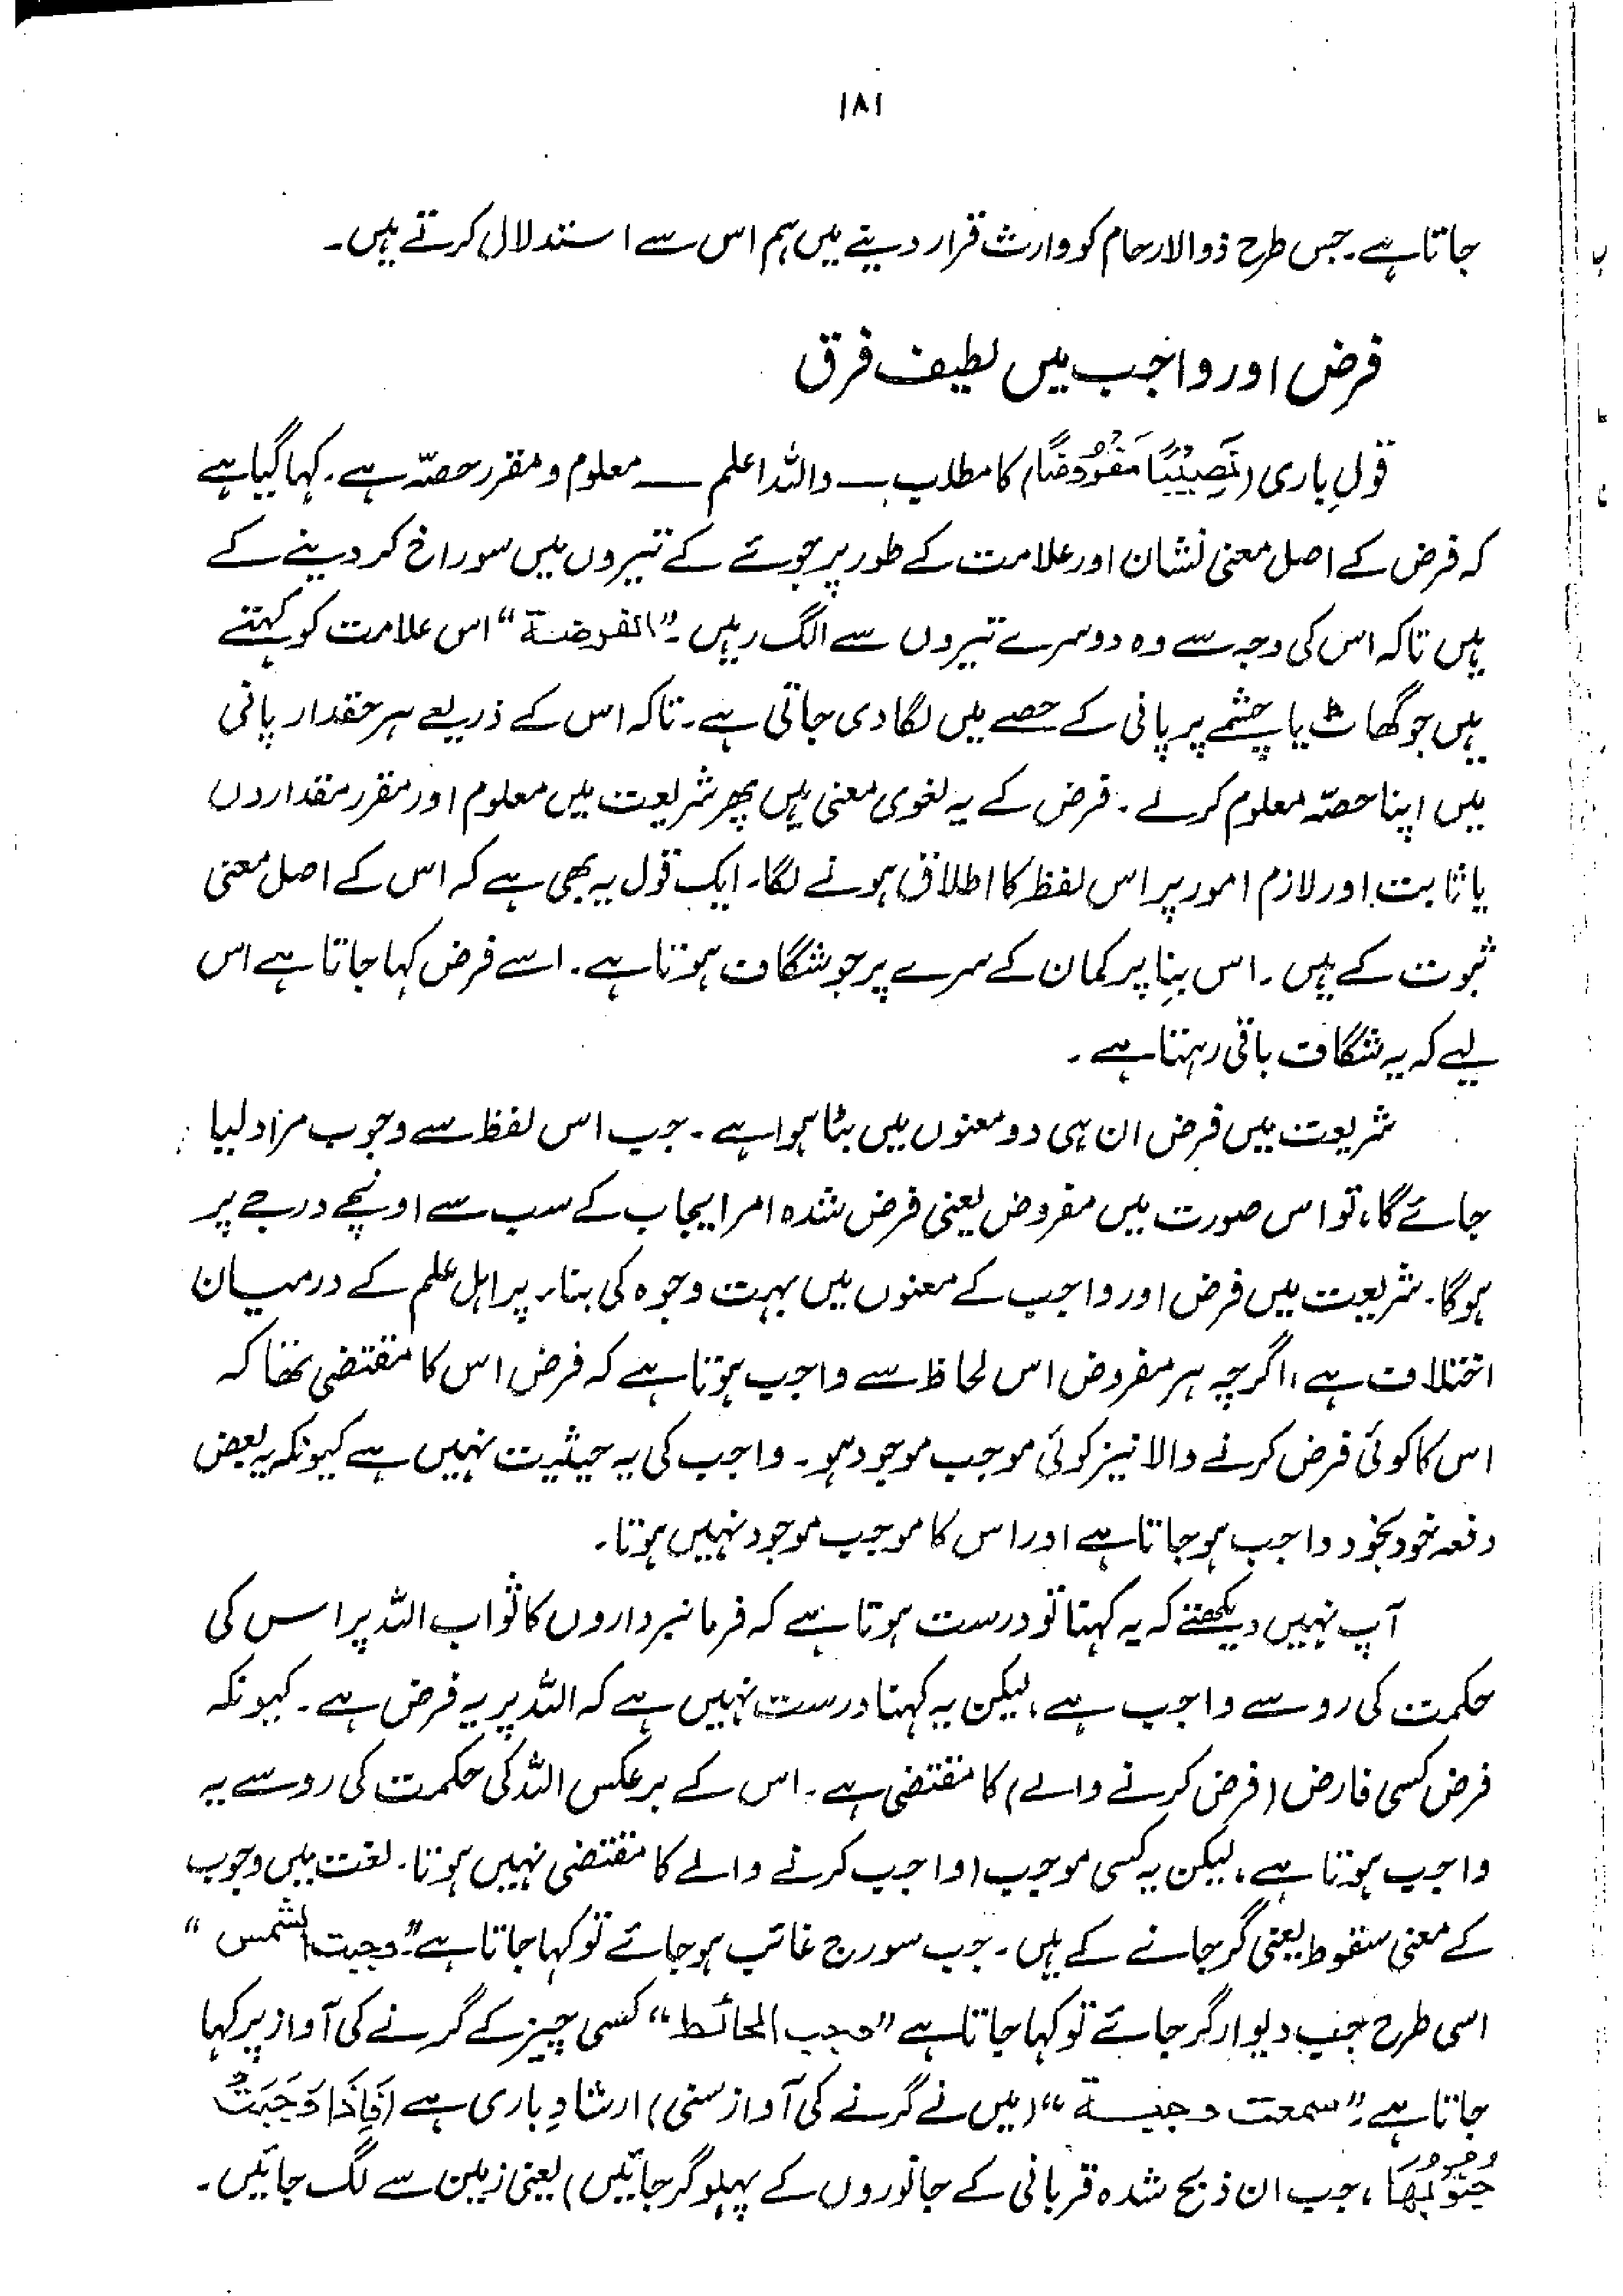 ۱۸۱
جاتا ہے۔ جس طرح ذوالارحام کو وارث قرار دینے میں ہم اس سے استدلال کرتے ہیں۔
فرض اور واجب میں لطیف فرق
قولِ باری (نَصِيْبًا مَّفْرُوْضًا) کا مطلب ـــ واللہ اعلم ـــ معلوم و مقرر حصّہ ہے۔ کہا گیا ہے
کہ فرض کے اصل معنی نشان اور علامت کے طور پر جوئے کے تیروں میں سوراخ کر دینے کے
ہیں تاکہ اس کی وجہ سے وہ دوسرے تیروں سے الگ رہیں۔ "الفرضة" اس علامت کو کہتے
ہیں جو گھاٹ یا چشمے پر پانی کے حصے میں لگا دی جاتی ہے۔ تاکہ اس کے ذریعے ہر حقدار پانی
میں اپنا حصّہ معلوم کرلے۔ فرض کے یہ لغوی معنی ہیں پھر شریعت میں معلوم اور مقرر مقداروں
یا ثابت اور لازم امور پر اس لفظ کا اطلاق ہونے لگا۔ ایک قول یہ بھی ہے کہ اس کے اصل معنی
ثبوت کے ہیں۔ اس بنا پر کمان کے سرے پر جو شگاف ہوتا ہے۔ اسے فرض کہا جاتا ہے اس
لیے کہ یہ شگاف باقی رہتا ہے۔
شریعت میں فرض ان ہی دو معنوں میں بٹا ہوا ہے۔ جب اس لفظ سے وجوب مراد لیا
جائے گا، تو اس صورت میں مفروض یعنی فرض شدہ امر ایجاب کے سب سے اونچے درجے پر
ہوگا۔ شریعت میں فرض اور واجب کے معنوں میں بہت وجوہ کی بناء پر اہل علم کے درمیان
اختلاف ہے، اگرچہ ہر مفروض اس لحاظ سے واجب ہوتا ہے کہ فرض اس کا مقتضی تھا کہ
اس کا کوئی فرض کرنے والا نیز کوئی موجب موجود ہو۔ واجب کی یہ حیثیت نہیں ہے کیونکہ یہ بعض
دفعہ خود بخود واجب ہو جاتا ہے اور اس کا موجب موجود نہیں ہوتا۔
آپ نہیں دیکھتے کہ یہ کہنا تو درست ہوتا ہے کہ فرمانبرداروں کا ثواب اللہ پر اس کی
حکمت کی رو سے واجب ہے، لیکن یہ کہنا درست نہیں ہے کہ اللہ پر یہ فرض ہے۔ کیونکہ
فرض کسی فارض (فرض کرنے والے) کا مقتضی ہے۔ اس کے برعکس اللہ کی حکمت کی رو سے یہ
واجب ہوتا ہے، لیکن یہ کسی موجب (واجب کرنے والے کا مقتضی نہیں ہوتا۔ لغت میں وجوب
کے معنی سقوط یعنی گر جانے کے ہیں۔ جب سورج غائب ہو جائے تو کہا جاتا ہے "وجبت الشمس"
اسی طرح جب دیوار گر جائے تو کہا جاتا ہے "وجب الحائط" کسی چیز کے گرنے کی آواز پر کہا
جاتا ہے "سمعت وجبة" (میں نے گرنے کی آواز سنی) ارشادِ باری ہے (فَاِذَا وَجَبَتْ
جُنُوْبُهَا، جب ان ذبح شدہ قربانی کے جانوروں کے پہلو گر جائیں) یعنی زمین سے لگ جائیں۔